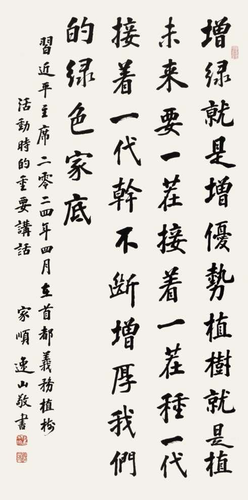 增绿就是增優勢植樹就是植
未来要一茬接着一茬種一代
接着一代幹不断增厚我們
的绿色家底
習近平主席二零二四年四月在首都義務植樹
活動時的重要講話
家順逸山敬書